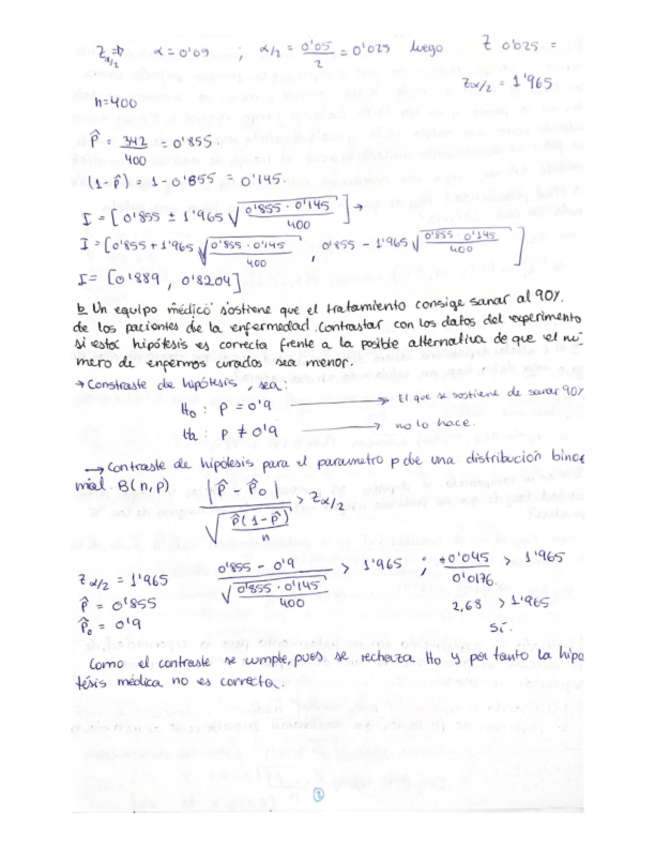 Zα/2 ⇒ α = 0'05 ; α/2 = 0'05/2 = 0'025 luego Z 0'025 =
Zα/2 = 1'965
n=400
p̂ = 342/400 = 0'855.
(1-p̂) = 1-0'855 = 0'145.
I = [0'855 ± 1'965 √(0'855·0'145/400)] →
I = [0'855 + 1'965 √(0'855·0'145/400) , 0'855 - 1'965 √(0'855·0'145/400)]
I = [0'889 , 0'8204]
b. Un equipo médico sostiene que el tratamiento consige sanar al 90%.
de los pacientes de la enfermedad. Contrastar con los datos del experimento
si esta hipótesis es correcta frente a la posible alternativa de que el nú-
mero de enfermos curados sea menor.
→ Constraste de hipótesis, sea:
Ho : p = 0'9 → El que se sostiene de sanar 90%
Ha : p ≠ 0'9 → no lo hace.
→ Contraste de hipólesis para el parámetro p de una distribución bino
mial. B(n,p) |p̂ - p̂o| / √(p̂(1-p̂)/n) > Zα/2
Zα/2 = 1'965
p̂ = 0'855
p̂o = 0'9
0'855 - 0'9 / √(0'855·0'145/400) > 1'965 ; +0'045/0'0176. > 1'965
2,68 > 1'965
Sí.
Como el contraste se cumple, pues se rechaza Ho y por tanto la hipo
tésis médica no es correcta.
2